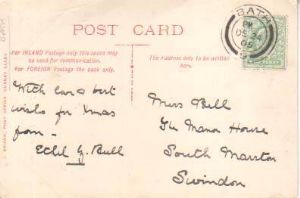 POST CARD
BATH
For INLAND Postage only this space may
be used for communication.
For FOREIGN Postage the back only.
The Address only to be written
here.
With love & best
wishes for Xmas
from -
Ethel G. Bull
Miss Bull
The Manor House
South Marston
Swindon